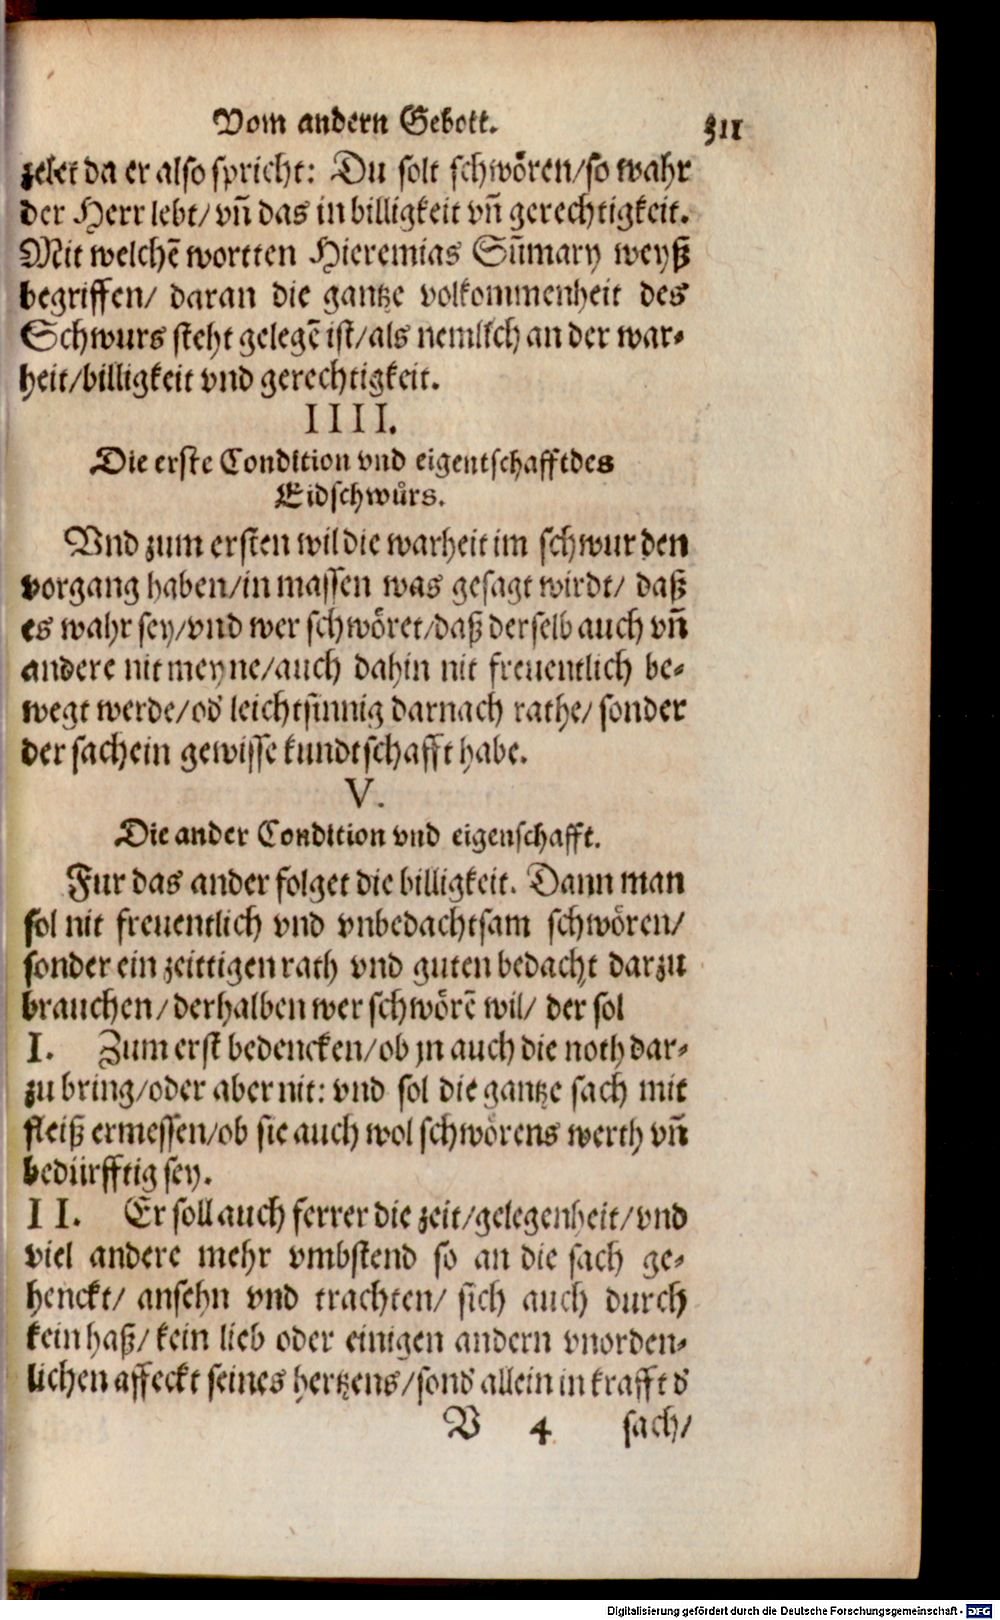 Vom andern Gebott. 311
zelet da er also spricht: Du solt schwören/so wahr
der Herr lebt/ vn̄ das in billigkeit vn̄ gerechtigkeit.
Mit welchē wortten Hieremias Sūmary weyß
begriffen/ daran die gantze volkommenheit des
Schwurs steht gelegē ist/als nemlich an der war-
heit/billigkeit vnd gerechtigkeit.
IIII.
Die erste Condition vnd eigentschafft des
Eidschwůrs.
Vnd zum ersten wil die warheit im schwur den
vorgang haben/in massen was gesagt wirdt/ daß
es wahr sey/vnd wer schwöret/daß derselb auch vn̄
andere nit meyne/auch dahin nit freuentlich be-
wegt werde/od leichtsinnig darnach rathe/ sonder
der sachein gewisse kundtschafft habe.
V.
Die ander Condition vnd eigenschafft.
Fur das ander folget die billigkeit. Dann man
sol nit freuentlich vnd vnbedachtsam schwören/
sonder ein zeittigen rath vnd guten bedacht darzu
brauchen/derhalben wer schwörē wil/ der sol
I. Zum erst bedencken/ob jn auch die noth dar-
zu bring/oder aber nit: vnd sol die gantze sach mit
fleiß ermessen/ob sie auch wol schwörens werth vn̄
bedürfftig sey.
II. Er soll auch ferrer die zeit/gelegenheit/vnd
viel andere mehr vmbstend so an die sach ge-
henckt/ ansehn vnd trachten/ sich auch durch
kein haß/kein lieb oder einigen andern vnorden-
lichen affeckt seines hertzens/sond allein in krafft d
V 4 sach/
Digitalisierung gefördert durch die Deutsche Forschungsgemeinschaft - DFG